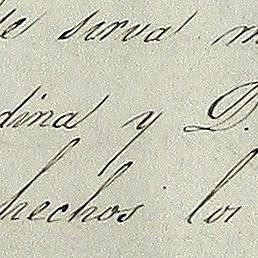 se sirva m
dina y D.
hechos los